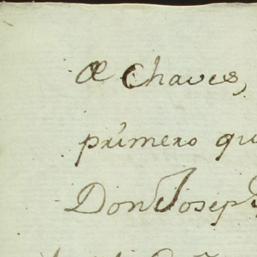 Œ Chaves,
primero qu
Don Joseph